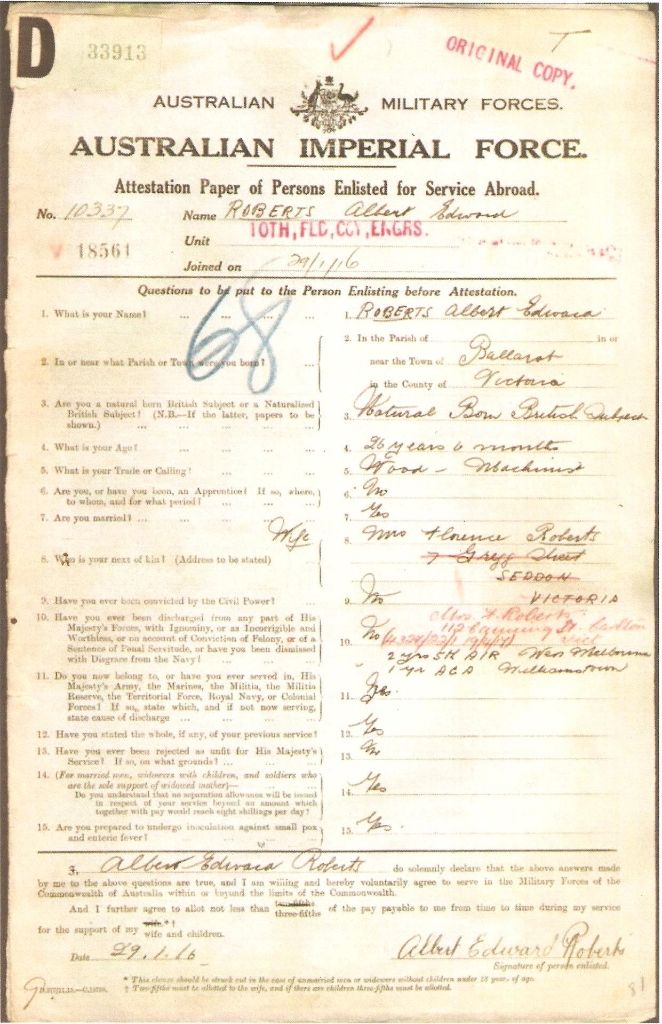 D
33913
ORIGINAL COPY.
AUSTRALIAN MILITARY FORCES.
AUSTRALIAN IMPERIAL FORCE.
Attestation Paper of Persons Enlisted for Service Abroad.
No. 10337 Name ROBERTS Albert Edward
18561 Unit 10TH, FLD, COY, ENGRS.
Joined on 29/1/16
Questions to be put to the Person Enlisting before Attestation.
68
1. What is your Name? ... ... ... ... 1. ROBERTS Albert Edward
2. In or near what Parish or Town were you born? ... 2. In the Parish of in or
near the Town of Ballarat
in the County of Victoria
3. Are you a natural born British Subject or a Naturalized
British Subject? (N.B.—If the latter, papers to be
shown.) ... 3. Natural Born British Subject
4. What is your Age? ... ... ... ... 4. 26 years 6 months
5. What is your Trade or Calling? ... ... ... 5. Wood - Machinist
6. Are you, or have you been, an Apprentice? If so, where,
to whom, and for what period? ... ... 6. No
7. Are you married? ... ... ... ... 7. Yes
Wife
8. Who is your next of kin? (Address to be stated) 8. Mrs Florence Roberts
7 Gregg Street
SEDDON
VICTORIA
Mrs F. Roberts
112 Canning St. Carlton
Vict
9. Have you ever been convicted by the Civil Power? ... 9. No
10. Have you ever been discharged from any part of His
Majesty's Forces, with Ignominy, or as Incorrigible and
Worthless, or on account of Conviction of Felony, or of a
Sentence of Penal Servitude, or have you been dismissed
with Disgrace from the Navy? ... 10. No
11. Do you now belong to, or have you ever served in, His
Majesty's Army, the Marines, the Militia, the Militia
Reserve, the Territorial Force, Royal Navy, or Colonial
Forces? If so, state which, and if not now serving,
state cause of discharge ... 11.
2 yrs SR AIR West Melbourne
1 yr AGA Williamstown
12. Have you stated the whole, if any, of your previous service? 12. Yes
13. Have you ever been rejected as unfit for His Majesty's
Service? If so, on what grounds? ... 13. No
14. (For married men, widowers with children, and soldiers who
are the sole support of widowed mother)—
Do you understand that no separation allowance will be issued
in respect of your service beyond an amount which
together with pay would reach eight shillings per day? 14. Yes
15. Are you prepared to undergo inoculation against small pox
and enteric fever? ... 15. Yes.
I, Albert Edward Roberts do solemnly declare that the above answers made
by me to the above questions are true, and I am willing and hereby voluntarily agree to serve in the Military Forces of the
Commonwealth of Australia within or beyond the limits of the Commonwealth.
And I further agree to allot not less than two-fifths three-fifths of the pay payable to me from time to time during my service
for the support of my wife *† wife and children.
Date 29.1.16 Albert Edward Roberts
Signature of person enlisted.
* This clause should be struck out in the case of unmarried men or widowers without children under 18 year. of age.
† Two-fifths must be allotted to the wife, and if there are children three-fifths must be allotted.
81